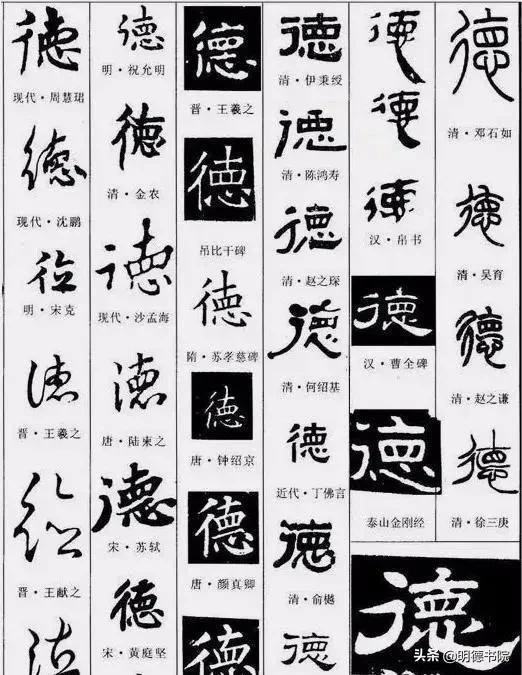 德
现代·周慧珺
德
现代·沈鹏
德
明·宋克
德
晋·王羲之
德
晋·王献之
德
德
明·祝允明
德
清·金农
德
现代·沙孟海
德
唐·陆柬之
德
宋·苏轼
德
宋·黄庭坚
德
晋·王羲之
德
吊比干碑
德
隋·苏孝慈碑
德
唐·钟绍京
德
唐·颜真卿
德
德
清·伊秉绶
德
清·陈鸿寿
德
清·赵之琛
德
清·何绍基
德
近代·丁佛言
德
清·俞樾
德
德
德
德
汉·帛书
德
汉·曹全碑
德
泰山金刚经
德
清·邓石如
德
清·吴育
德
清·赵之谦
德
清·徐三庚
德
头条 @明德书院